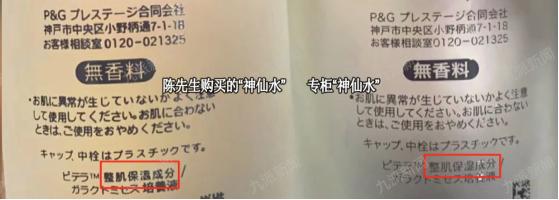 P&G プレステージ合同会社
神戸市中央区小野柄通7-1-18
お客様相談室 0120-021325
無香料
陈先生购买的“神仙水”
・お肌に異常が生じていないかよく注意
して使用してください。お肌に合わない
ときは、ご使用をおやめください。
キャップ、中栓はプラスチックです。
ピテラ™ 整肌保湿成分/
ガラクトミセス培養液
P&G プレステージ合同会社
神戸市中央区小野柄通7-1-18
お客様相談室 0120-021325
無香料
专柜“神仙水”
・お肌に異常が生じていないかよく注意
して使用してください。お肌に合わない
ときは、ご使用をおやめください。
キャップ、中栓はプラスチックです。
ピテラ™ 整肌保湿成分/
ガラクトミセス培養液